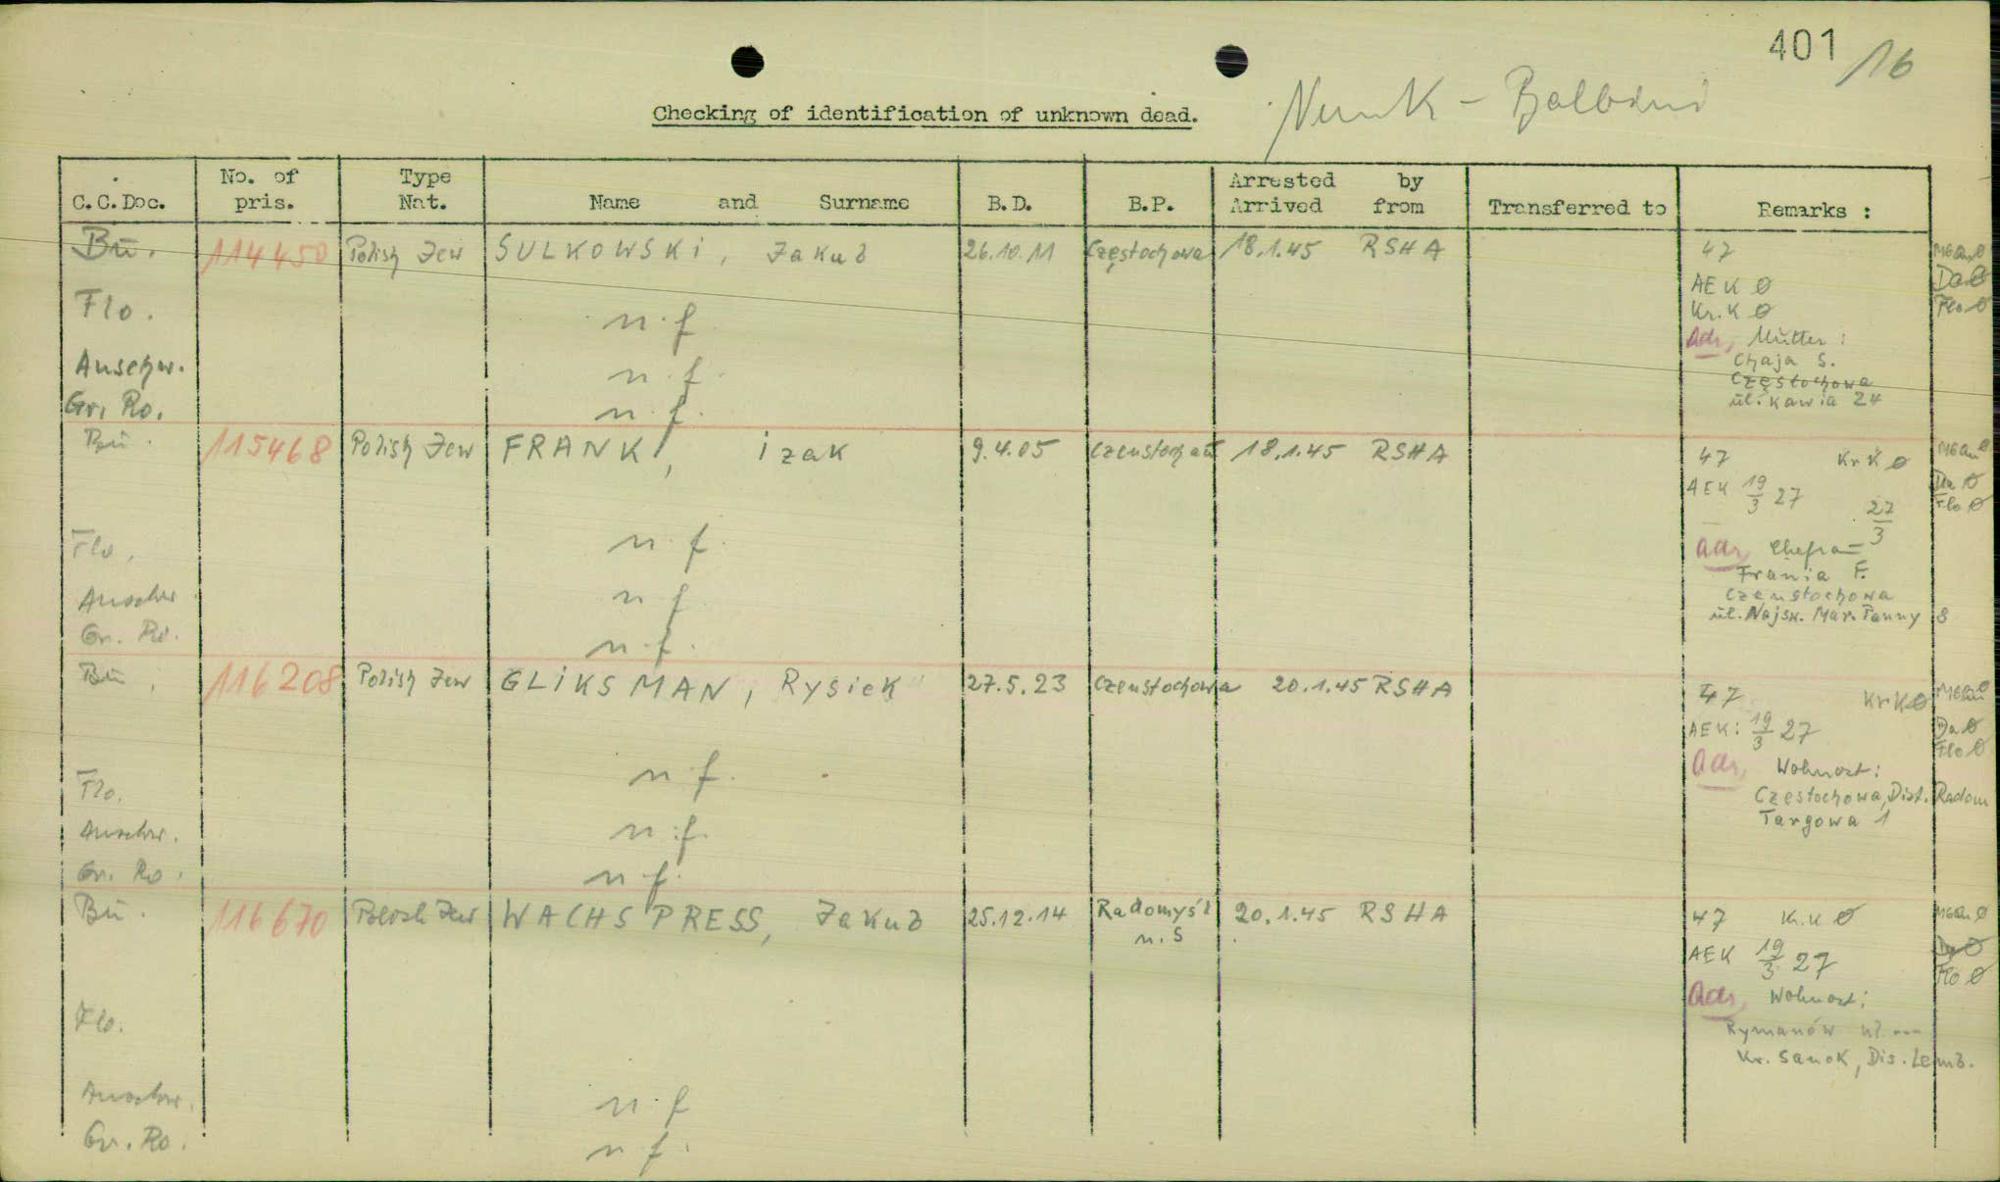 401 /16
Checking of identification of unknown dead.
C.C.Doc. No. of pris. Type Nat. Name and Surname B.D. B.P. Arrested by Arrived from Transferred to Remarks :
Bu. 114450 Polish Jew SULKOWSKI, Jakub 26.10.11 Częstochowa 18.1.45 RSHA 47
Da Ø
AEK Ø
Flo. n.f Kr.K Ø Flo Ø
Adr, Mutter:
Auschw. n.f. Chaja S.
Częstochowa
Gr. Ro. n.f. ul. Kawia 24
Bu. 115468 Polish Jew FRANK, izak 9.4.05 18.1.45 RSHA 47 Kr K Ø
AEK 19/3 27 Da Ø
27/3 Flo Ø
Flo. n.f. Adr,
Frania F.
Auschw n f. Czenstochowa
Gr. Ro. n.f. ul. Najsw. Mar. Panny 8
Bu. 116208 Polish Jew GLIKSMAN, Rysiek 27.5.23 Czenstochowa 20.1.45 RSHA 47 Kr K Ø
AEK: 19/3 27 Da Ø
Flo Ø
Flo. n.f. Adr, Wohnort:
Czestochowa, Dist. Radom
Auschw. n.f. Targowa 1
Gr. Ro. n.f.
Bu. 116670 Polish Jew WACHSPRESS, Jakub 25.12.14 Radomyśl n.S 20.1.45 RSHA 47 Kr.K Ø
AEK 19/3 27 Da Ø
Flo Ø
Adr, Wohnort:
Flo. Rymanów
Kr. Sanok, Dis. Lemb.
Auschw. n.f
Gr. Ro. n f.